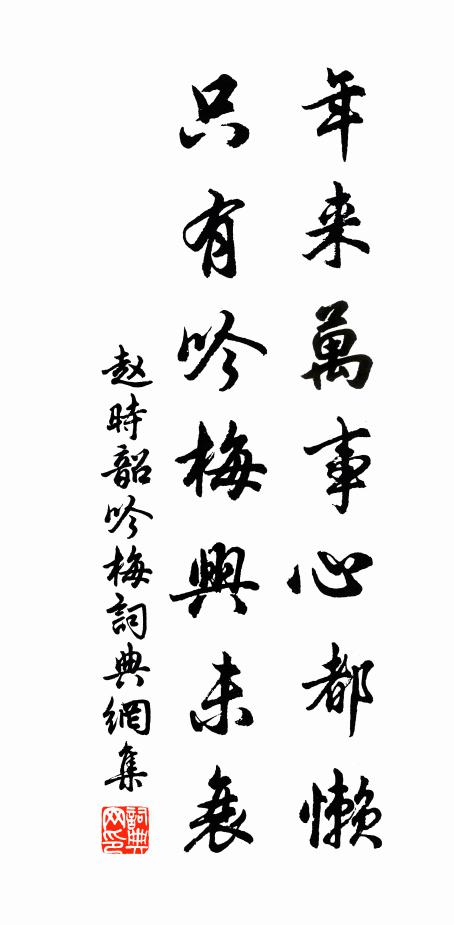 年来萬事心都懶
只有吟梅興未衰
赵時韶吟梅詞典網集
詞典网印